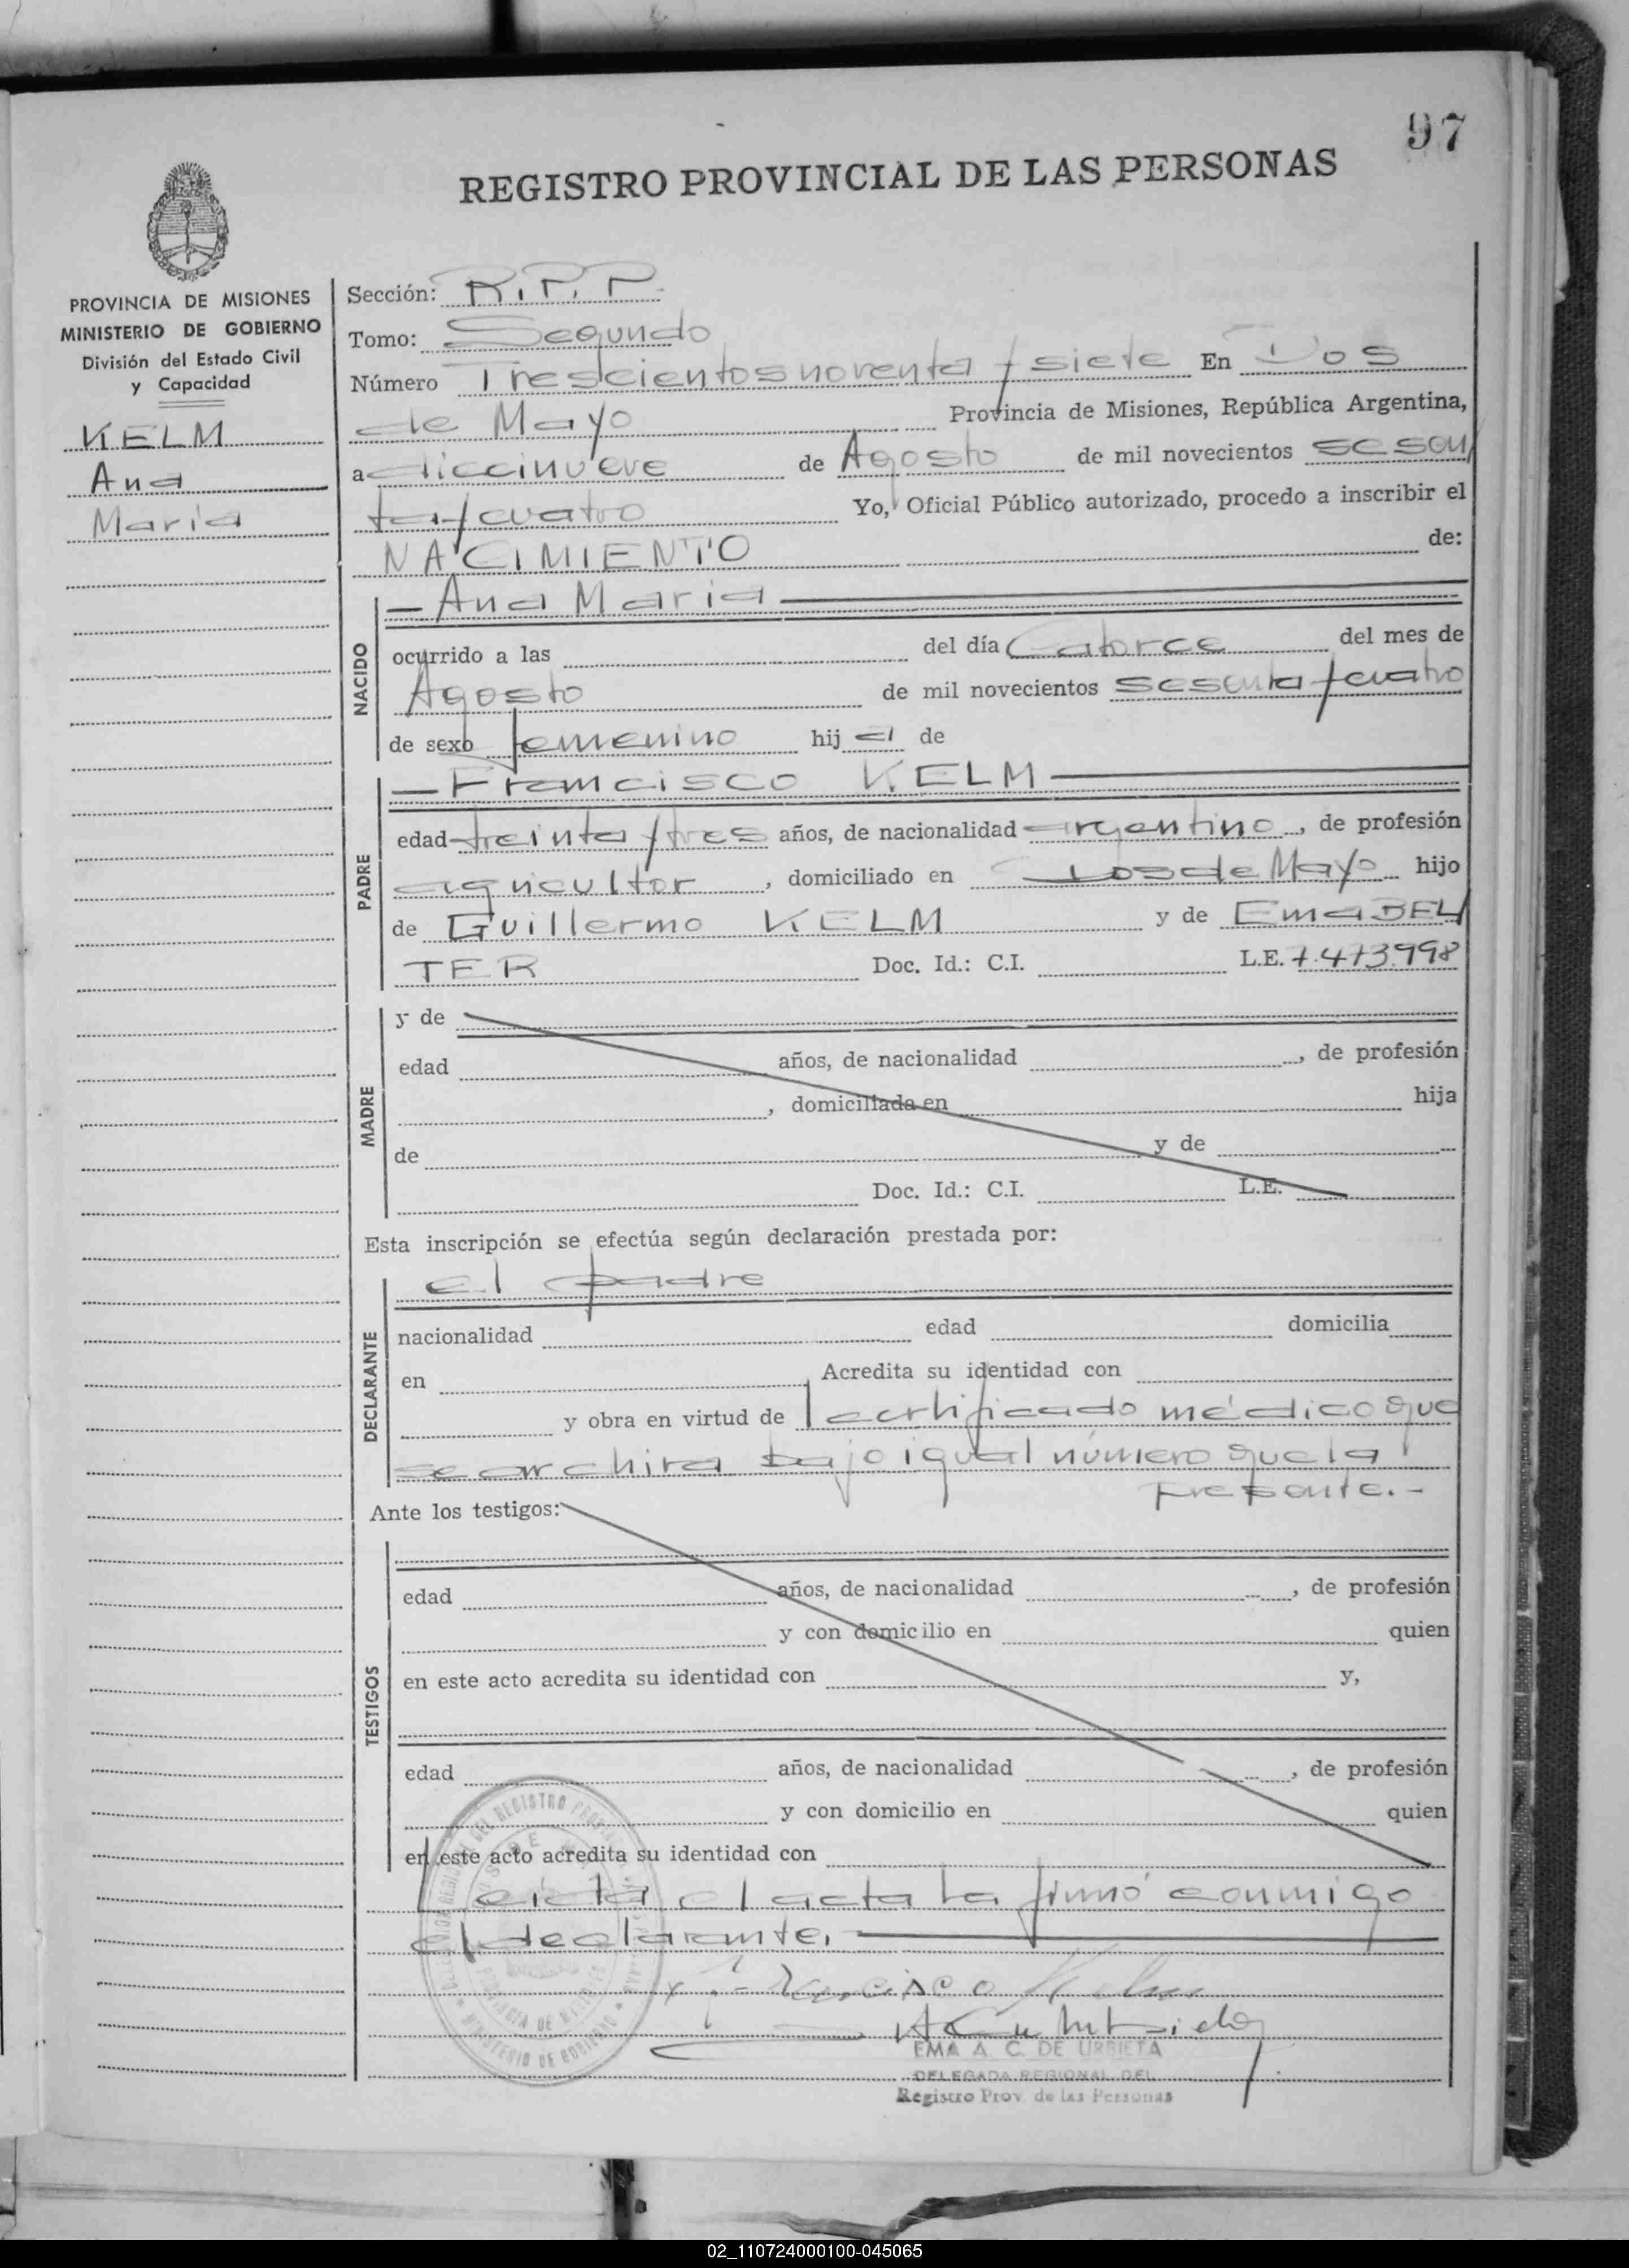 97
REGISTRO PROVINCIAL DE LAS PERSONAS
PROVINCIA DE MISIONES
MINISTERIO DE GOBIERNO
División del Estado Civil
y Capacidad
KELM
Ana
Maria
Sección: R.P.P.
Tomo: Segundo
Número Trescientos noventa y siete En Dos
de Mayo Provincia de Misiones, República Argentina,
a diecinueve de Agosto de mil novecientos sesen
ta y cuatro Yo, Oficial Público autorizado, procedo a inscribir el
NACIMIENTO de:
NACIDO
— Ana Maria —
ocurrido a las del día Catorce del mes de
Agosto de mil novecientos sesenta y cuatro
de sexo femenino hij a de
PADRE
— Francisco KELM —
edad treinta y tres años, de nacionalidad argentino, de profesión
agricultor, domiciliado en Dos de Mayo hijo
de Guillermo KELM y de Ema BEL
TER Doc. Id.: C.I. L.E. 7.473.998
MADRE
y de
edad años, de nacionalidad , de profesión
, domiciliada en hija
de y de
Doc. Id.: C.I. L.E.
Esta inscripción se efectúa según declaración prestada por:
DECLARANTE
el padre
nacionalidad edad domicilia
en Acredita su identidad con
y obra en virtud de certificado médico que
se archiva bajo igual número que la
presente.-
Ante los testigos:
TESTIGOS
edad años, de nacionalidad , de profesión
y con domicilio en quien
en este acto acredita su identidad con y,
edad años, de nacionalidad , de profesión
y con domicilio en quien
en este acto acredita su identidad con
Leida el acta la firmó conmigo
el declarante.
Francisco Kelm
EMA A. C. DE URBIETA
DELEGADA REGIONAL DEL
Registro Prov. de las Personas
02_110724000100-045065